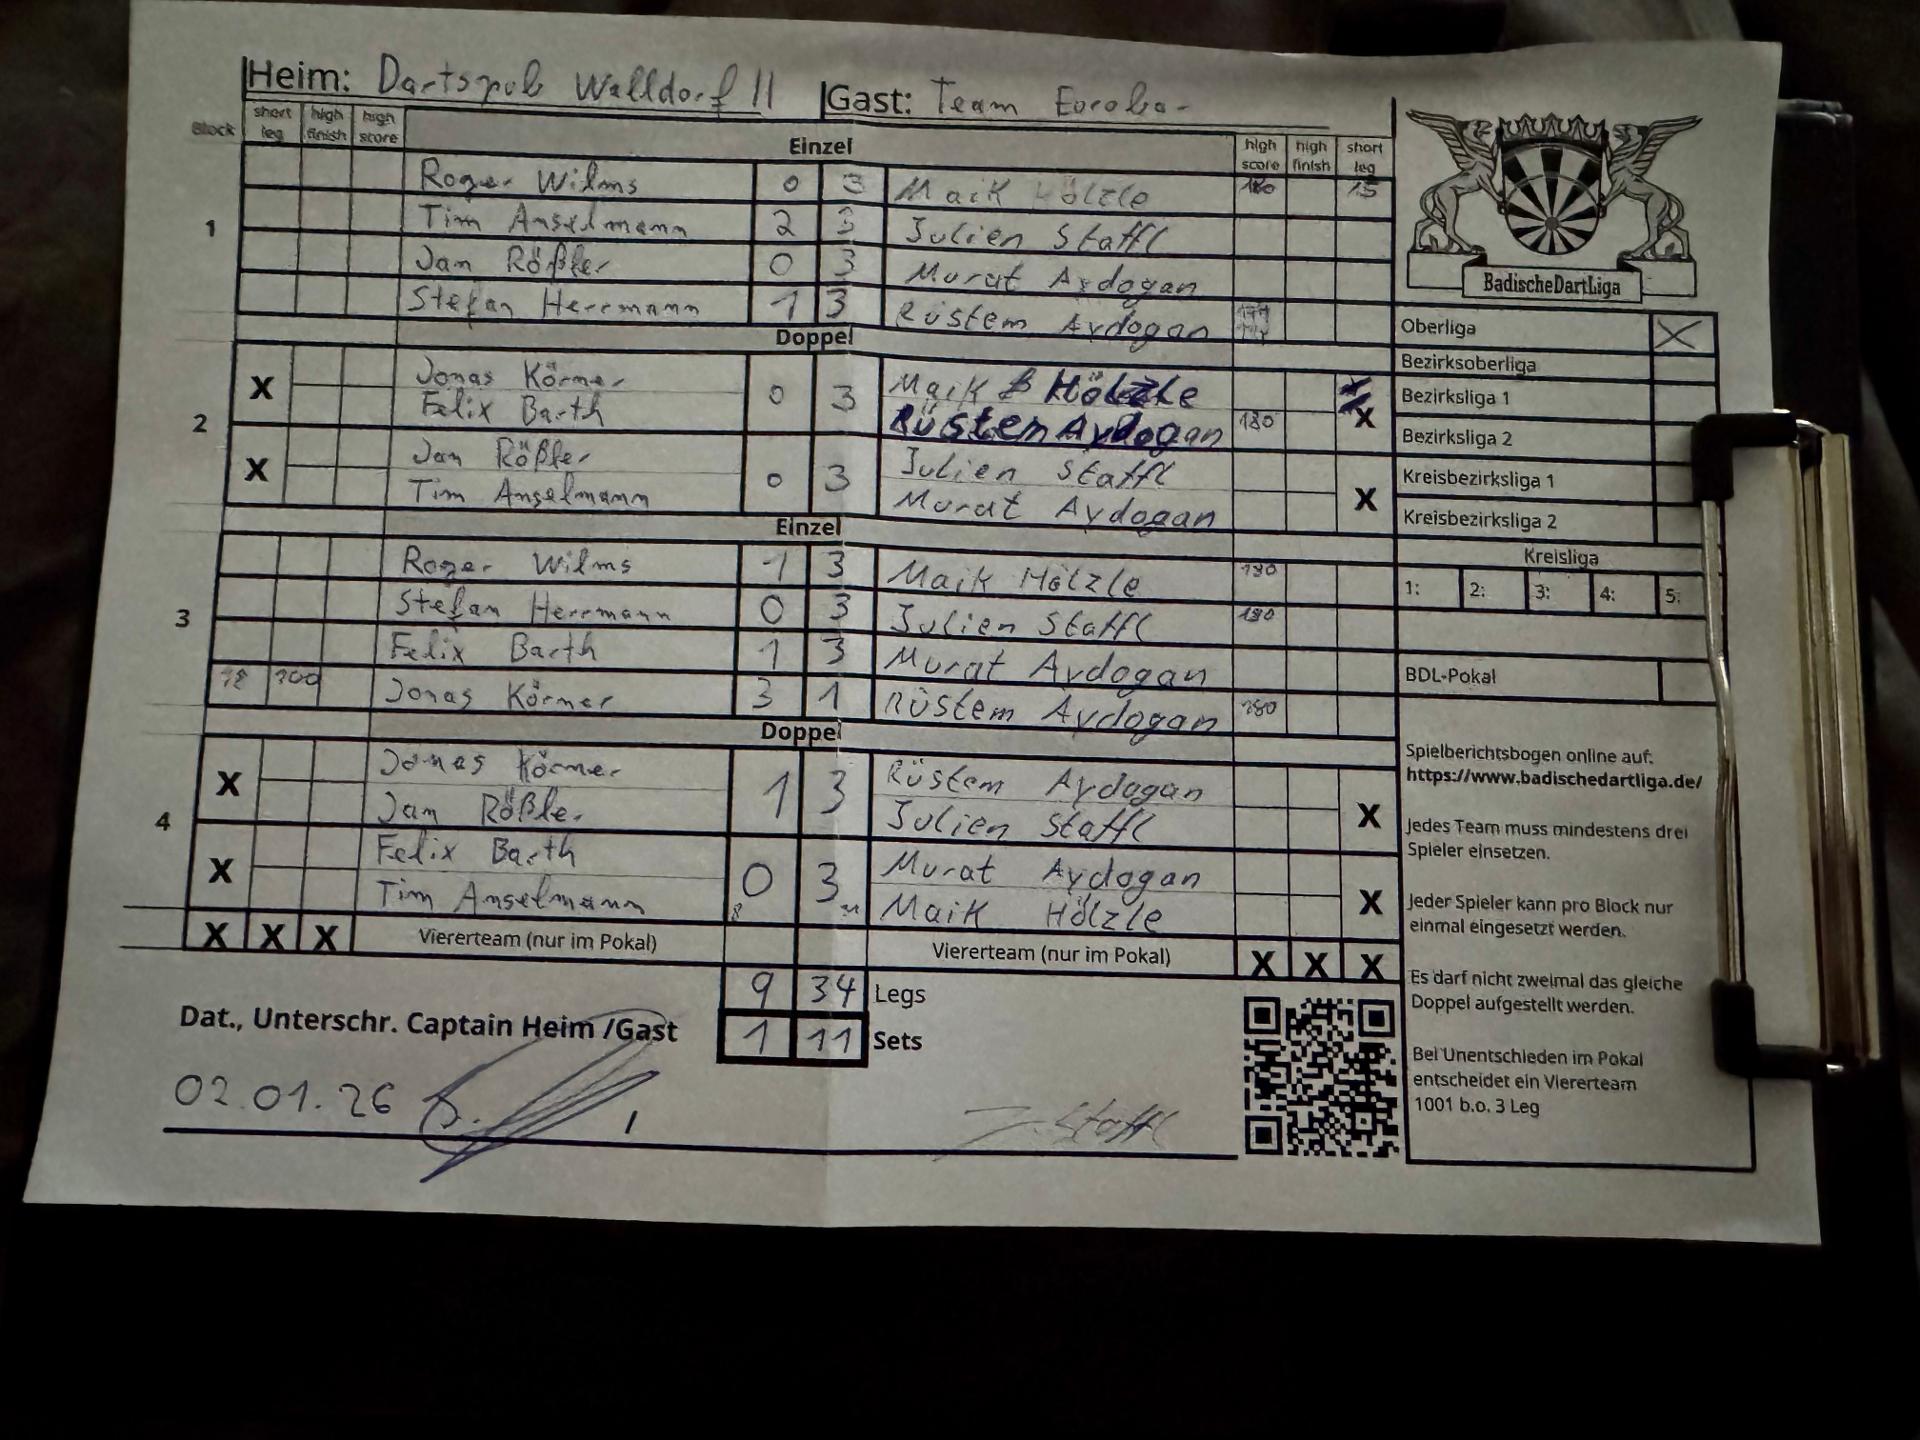 Heim: Dartspub Walldorf II Gast: Team Eurobar
Block short leg high finish high score Einzel high score high finish short leg
1
Roger Wilms 0 3 Maik Hölzle 180 15
Tim Anselmann 2 3 Julien Staffl
Jan Rößler 0 3 Murat Aydogan
Stefan Herrmann 1 3 Rüstem Aydogan
Doppel
2
X Jonas Körner 0 3 Maik Hölzle X
Felix Barth Rüstem Aydogan 180
X Jan Rößler 0 3 Julien Staffl X
Tim Anselmann Murat Aydogan
Einzel
3
Roger Wilms 1 3 Maik Hölzle 180
Stefan Herrmann 0 3 Julien Staffl 180
Felix Barth 1 3 Murat Aydogan
18 100 Jonas Körner 3 1 Rüstem Aydogan 180
Doppel
4
X Jonas Körner 1 3 Rüstem Aydogan X
Jan Rößler Julien Staffl
X Felix Barth 0 3 Murat Aydogan X
Tim Anselmann Maik Hölzle
X X X Viererteam (nur im Pokal) Viererteam (nur im Pokal) X X X
9 34 Legs
1 11 Sets
Dat., Unterschr. Captain Heim /Gast
02.01.26 J. Staffl
BadischeDartLiga
Oberliga X
Bezirksoberliga
Bezirksliga 1
Bezirksliga 2
Kreisbezirksliga 1
Kreisbezirksliga 2
Kreisliga
1: 2: 3: 4: 5:
BDL-Pokal
Spielberichtsbogen online auf:
https://www.badischedartliga.de/
Jedes Team muss mindestens drei
Spieler einsetzen.
Jeder Spieler kann pro Block nur
einmal eingesetzt werden.
Es darf nicht zweimal das gleiche
Doppel aufgestellt werden.
Bei Unentschieden im Pokal
entscheidet ein Viererteam
1001 b.o. 3 Leg